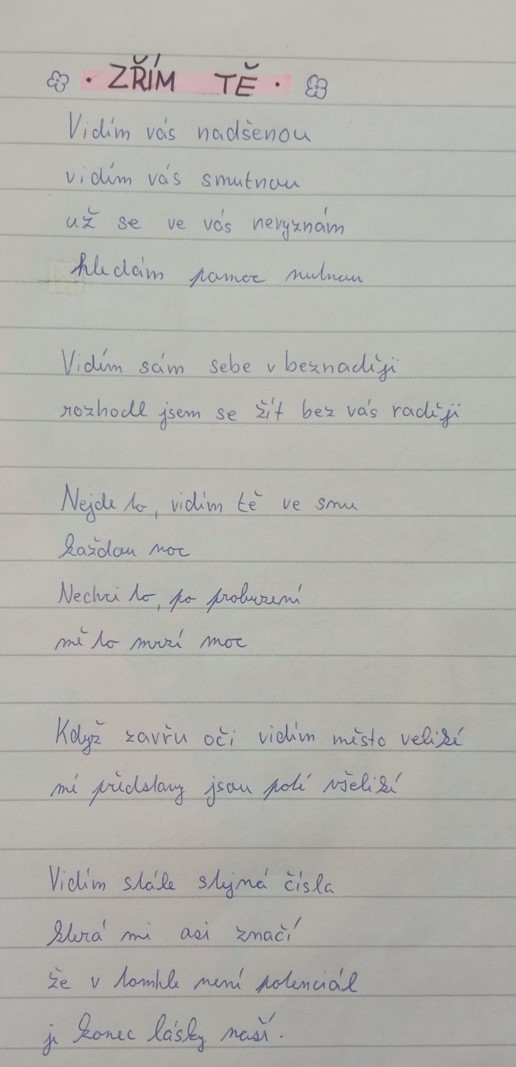 ZŘÍM TĚ
Vidím vás nadšenou
vidím vás smutnou
už se ve vás nevyznám
hledám pomoc nutnou
Vidím sám sebe v beznaději
rozhodl jsem se žít bez vás raději
Nejde to, vidím tě ve snu
každou noc
Nechci to, po probuzení
mě to mrzí moc
Když zavřu oči vidím město veliké
mé představy jsou poté všeliké
Vidím stále stejná čísla
která mi asi značí
že v tomhle není potenciál
je konec lásky naší.